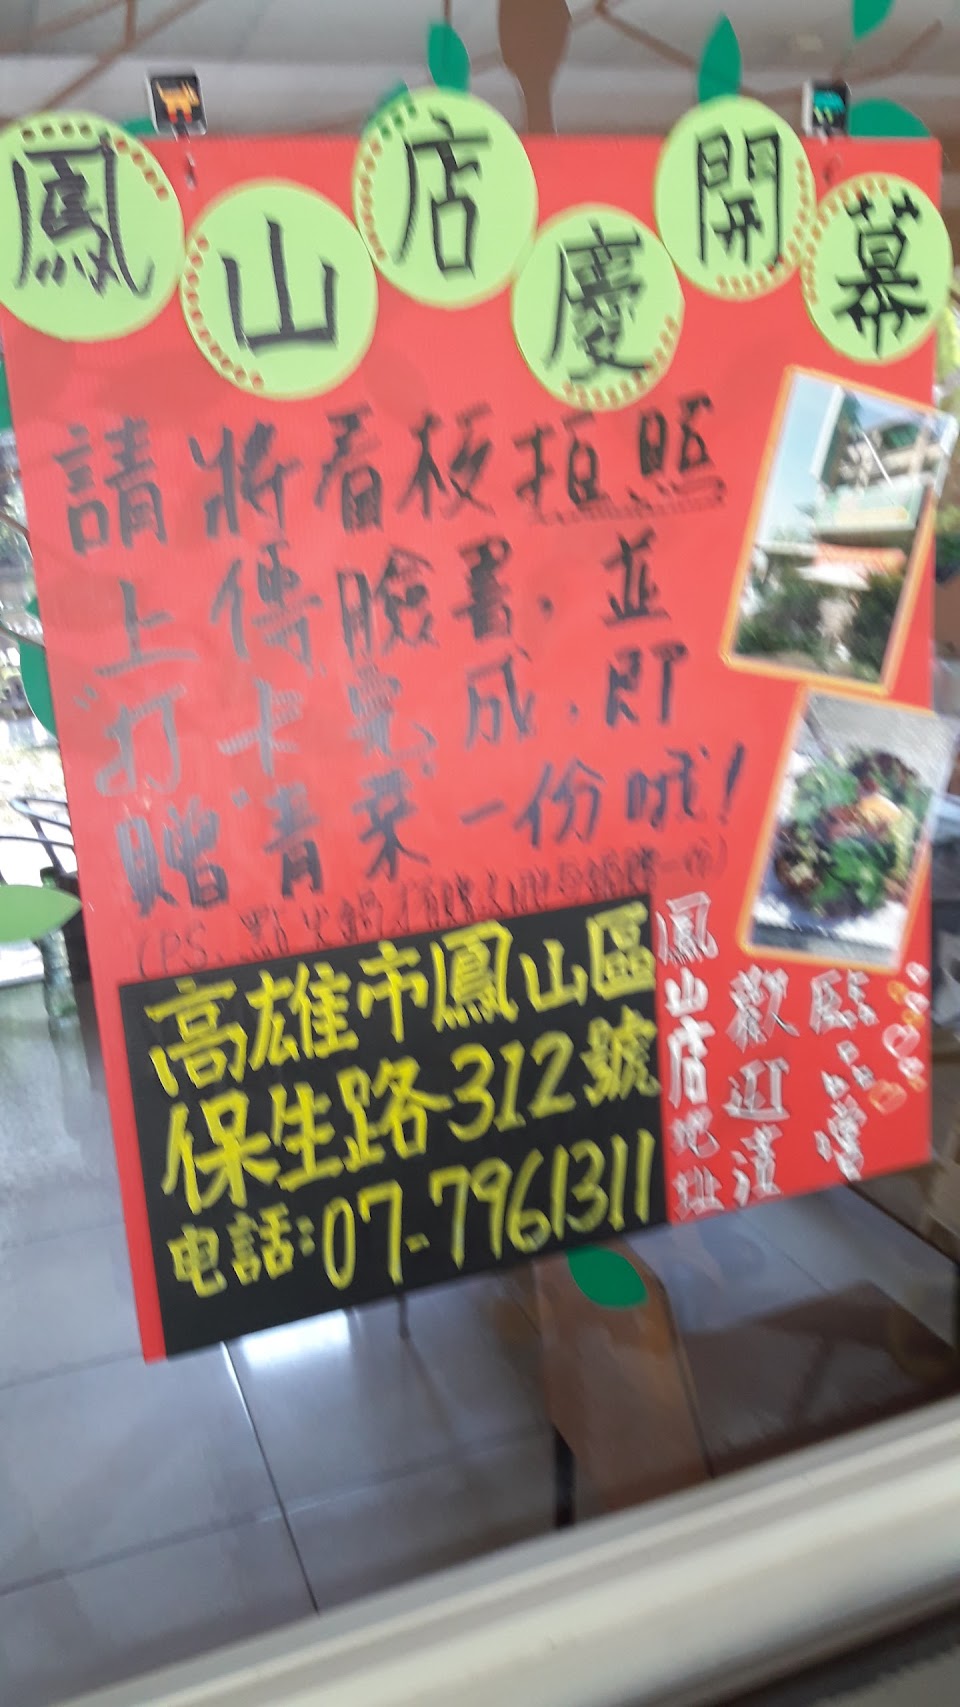 鳳山店慶開幕
請將看板拍照
上傳臉書,並
"打卡"完成,即
贈"青菜"一份哦!
(PS.點火鍋
高雄市鳳山區
保生路312號
电話:07-7961311
鳳山店地址
歡迎
品嚐